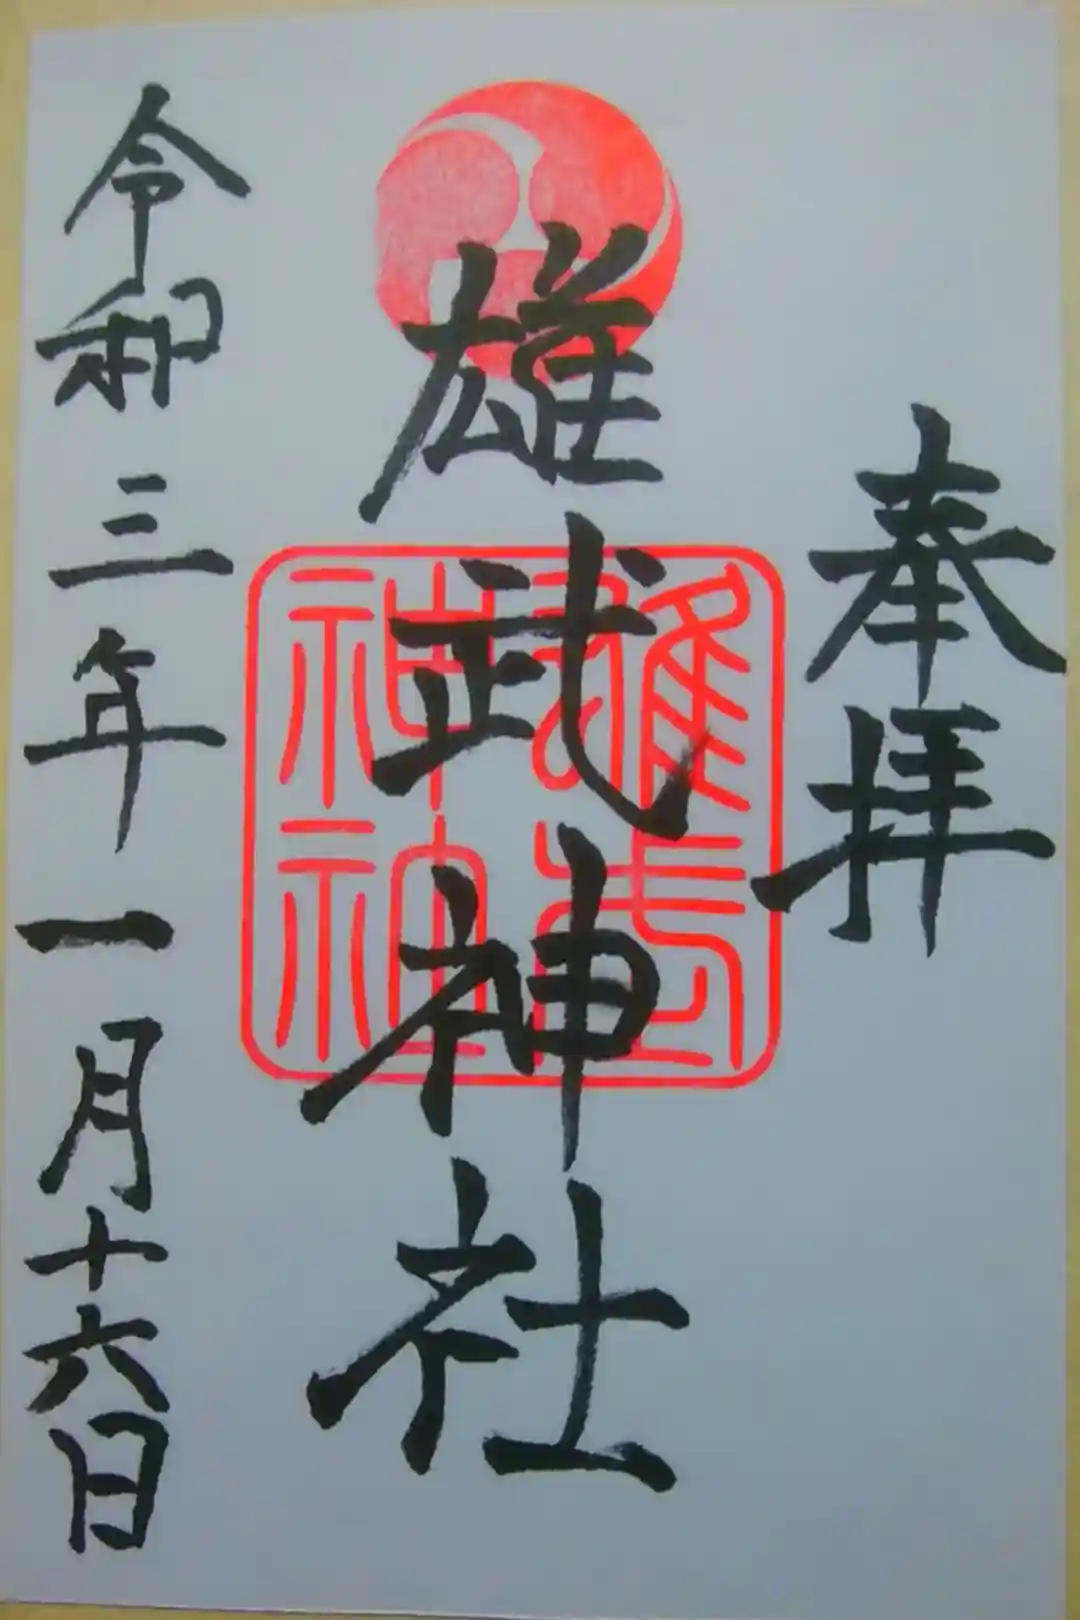 奉拝
雄武神社
雄武神社神印
令和三年一月十六日